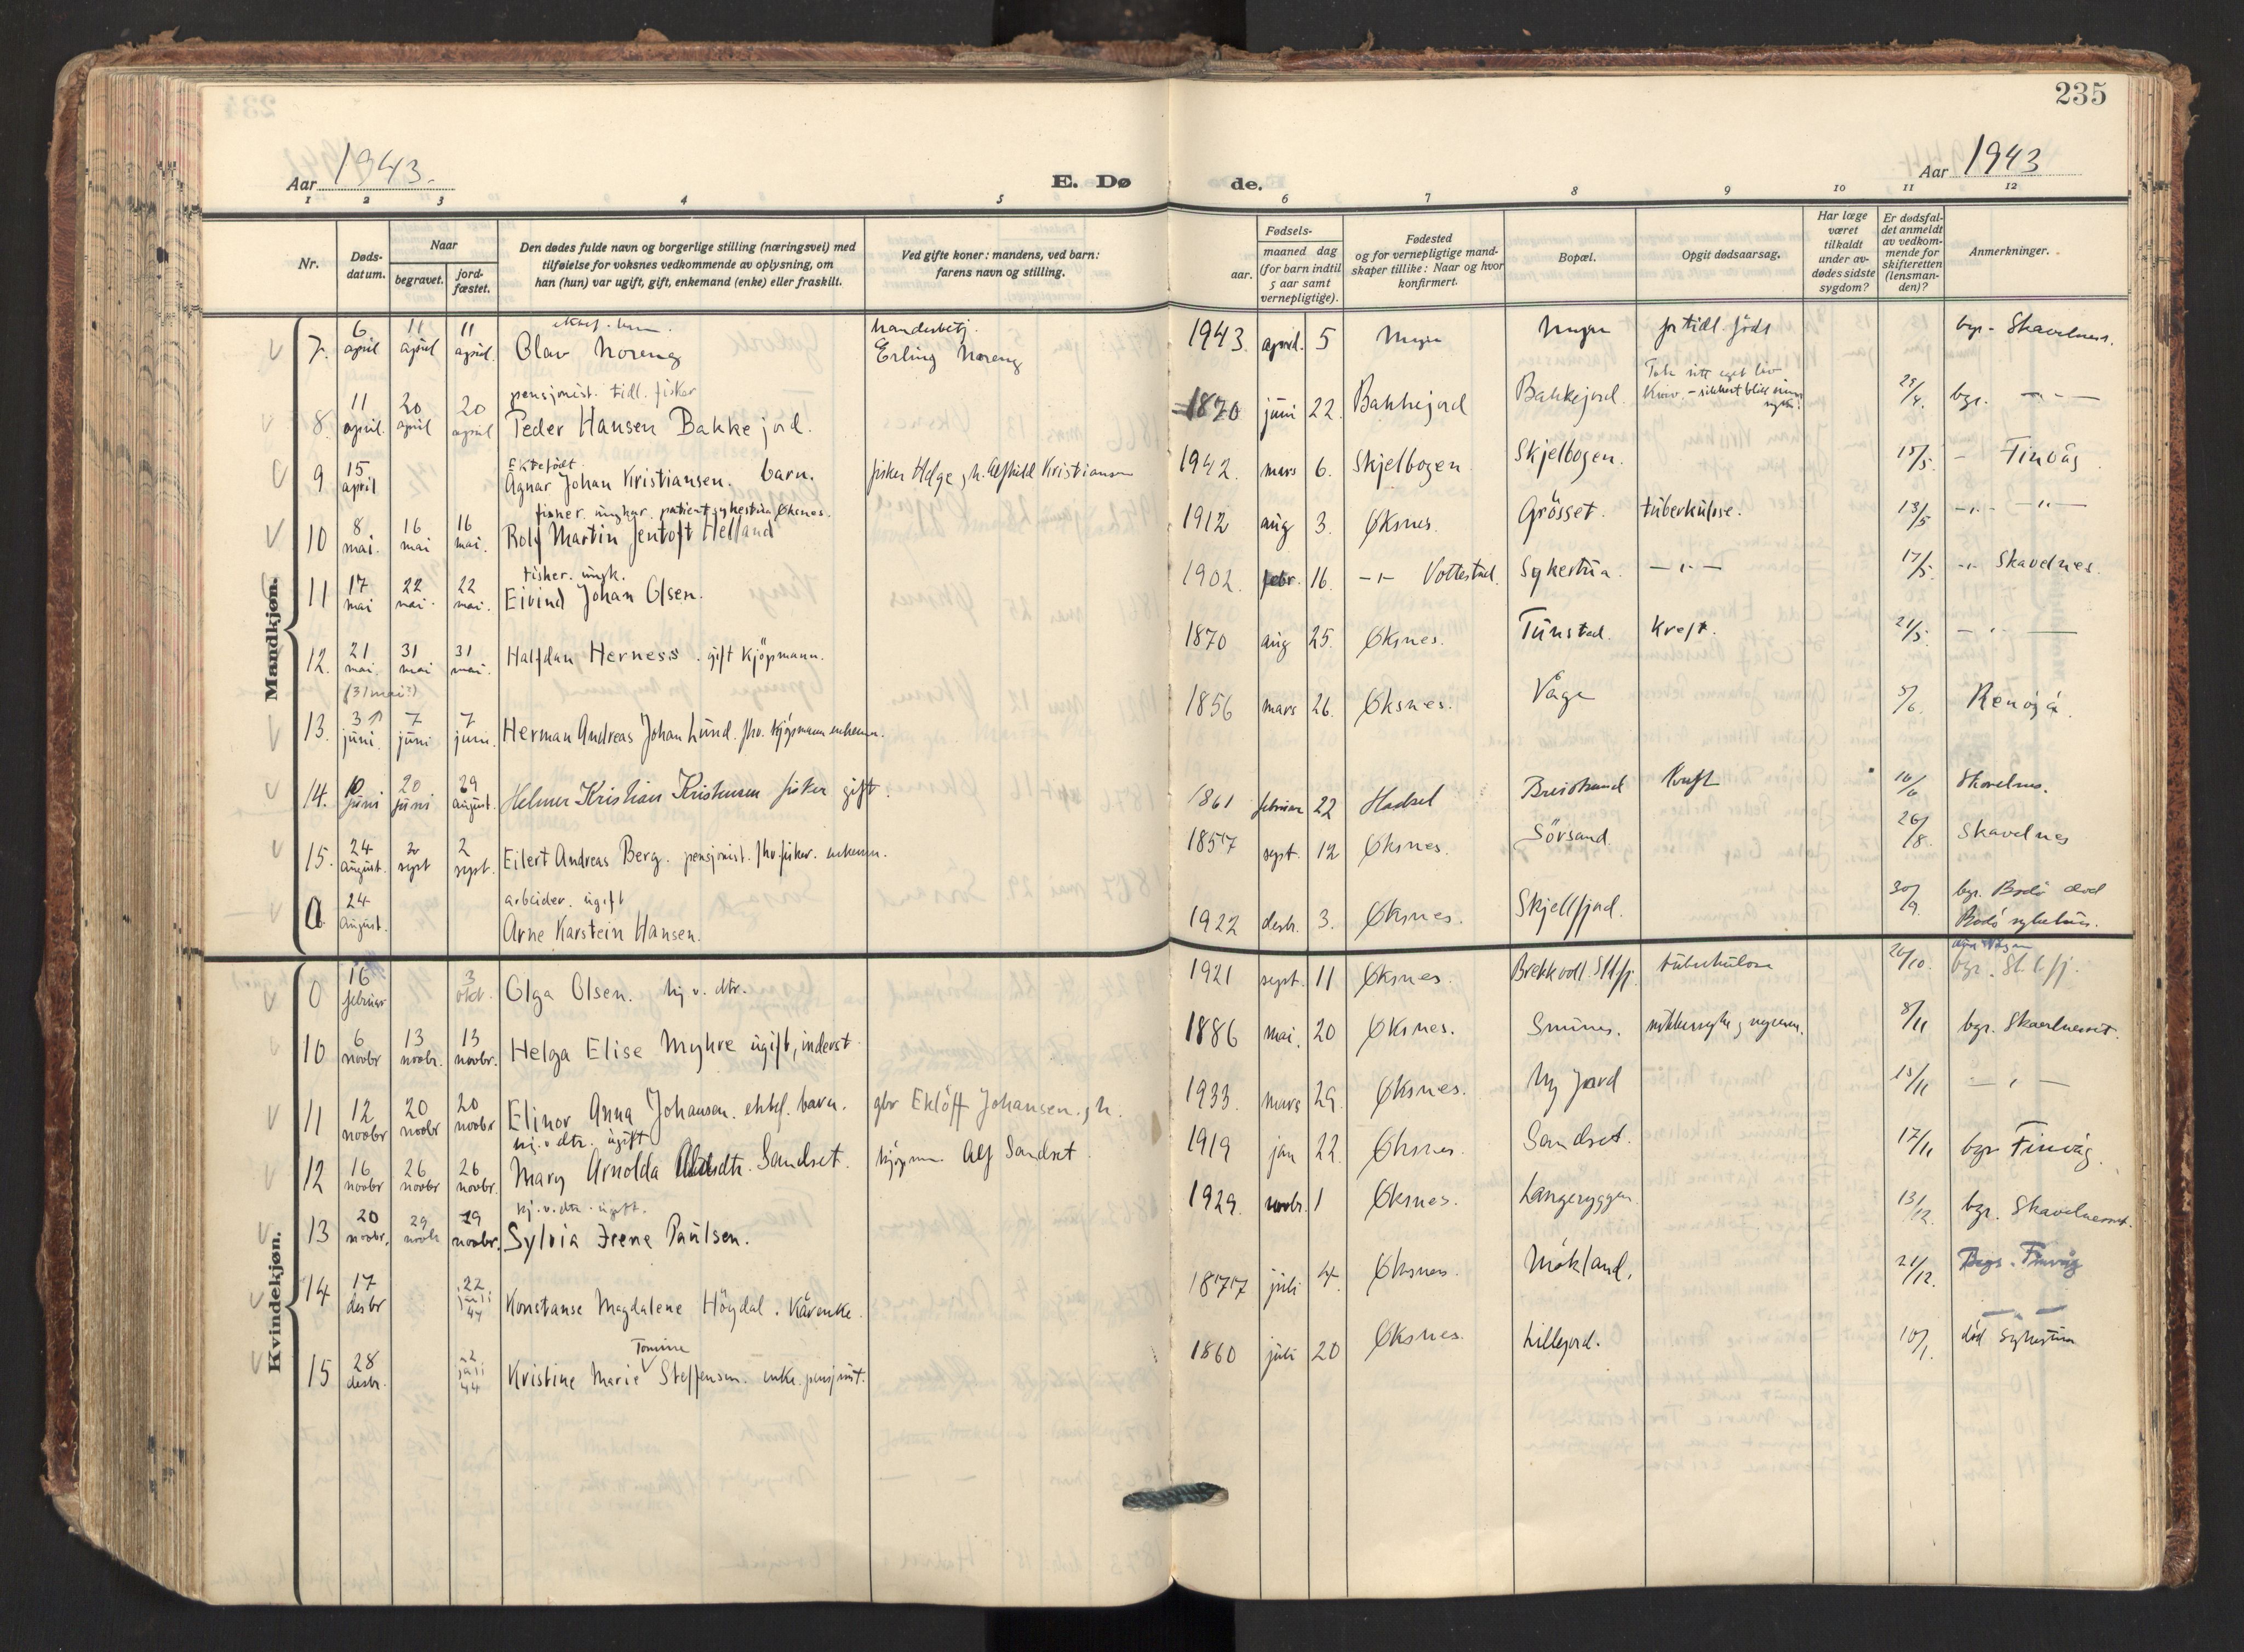 235
Aar 1943.
E. Dø
de.
Aar 1943
1 2 3 4 5 6 7 8 9 10 11 12
Nr.
Døds-
datum.
Naar
begravet.
jord-
fæstet.
Den dødes fulde navn og borgerlige stilling (næringsvei) med
tilføielse for voksnes vedkommende av oplysning, om
han (hun) var ugift, gift, enkemand (enke) eller fraskilt.
Ved gifte koner: mandens, ved barn:
farens navn og stilling.
Fødsels-
aar.
maaned dag
(for barn indtil
5 aar samt
vernepligtige).
Fødested
og for vernepligtige mand-
skaper tillike: Naar og hvor
konfirmert.
Bopæl.
Opgit dødsaarsag.
Har læge
været
tilkaldt
under av-
dødes sidste
sygdom?
Er dødsfal-
det anmeldt
av vedkom-
mende for
skifteretten
(lensman-
den)?
Anmerkninger.
Mandkjøn.
7. 6 april 11 april 11 april. Olav Noreng Erling Noreng 1943. april. 5 bgr. Skavelnes.
pensjonist. tidl. fisker
8. 11 april. 20 april 20 april Peder Hansen Bakkejord. 1870 juni 22. Bakkejord Bakkejord. Tok sitt eget liv bgr. — — —
Ektefødt
9 15 april Agnar Johan Kristiansen. barn. fisker Helge Kristiansen 1942. mars 6. Skjelbogen Skjelbogen. 15/5. - Finvåg.
fisker. ungkar. patient sykestua, Øksnes.
10 8 mai. 16 mai 16 mai. Rolf Martin Jentoft Helland 1912 aug 3. Øksnes. Grösset. tuberkulose. 13/5
fisker. ungk.
11 17 mai 22 mai. 22 mai. Eivind Johan Olsen. 1902. febr. 16. Vottestad. Sykestua. 17/5. Skavelnes.
12. 21 mai 31 mai 31 mai. Halfdan Herness. gift kjöpmann. 1870 aug 25. Øksnes. Tunstad. Kreft. 21/5.
(31 mai?)
13. 3 juni. 7 juni 7 juni. Herman Andreas Johan Lund. fhv. kjöpmann enkem. 1856 mars 26. Øksnes. Våge 5/6. Renöjå.
14. 10 juni 20 juni 29 august. Helmer Kristian Kristensen fisker gift. 1861 februar 22 Hadsel Breistrand Kreft 16/6 Skavelnes.
15. 24 august. 2 sept 2 sept. Eilert Andreas Berg. pensjonist. fhv. fisker. enkem. 1857 sept. 12 Øksnes. Sörsand. 26/8. Skavelnes
arbeider. ugift
0 24 august. Arne Karstein Hansen. 1922 desbr. 3. Øksnes. Skjellfjord. 30/9. bgr. Bodö död
Bodö sykehus.
Kvindekjøn.
0 16 februar 3 okt. Olga Olsen. hj. v. dtr. 1921 sept. 11 Øksnes. tuberkulose 20/10. bgr.
10 6 novbr 13 novbr. 13 novbr. Helga Elise Myhre ugift, inderst 1886 mai. 20 Øksnes. Smines. 8/11 bgr. Skavelnesset.
11 12 novbr 20 novbr 20 novbr Elinor Anna Johansen. ektef. barn. gbr Eklöff Johansen. 1933. mars 29. Øksnes. Nyjord 15/11
hj. v. dtr. ugift
12 16 novbr 26 novbr 26 novbr. Mary Arnolda Sandset. kjöpm. Alf Sandset 1919 jan 22. Øksnes. Sandset. 17/11 bgr Finvåg.
hj. v. dtr. ugift.
13 20 novbr. 29 novbr 29 novbr. Sylvia Irene Paulsen. 1929. novbr. 1 Øksnes. Langeryggen 13/12. bgr. Skavelnesset.
14 17 desbr 22 juli 44 Konstanse Magdalene Högdal. Kårenke. 1877 juli 4. Øksnes. Mökland. 21/12. Begr. Finvåg
Tomine
15 28 desbr. juli 44 Kristine Marie Steffensen. enke. pensjonist. 1860 juli 20 Øksnes. Lillejord. 10/1. död sykestua